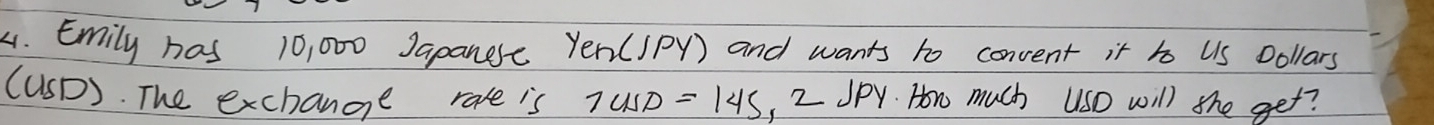 4. Emily has 10,000 Japanese Yen(JPY) and wants to convent it to US Dollars
(USD). The exchange rate is 1 USD = 145, 2 JPY. How much USD will she get?